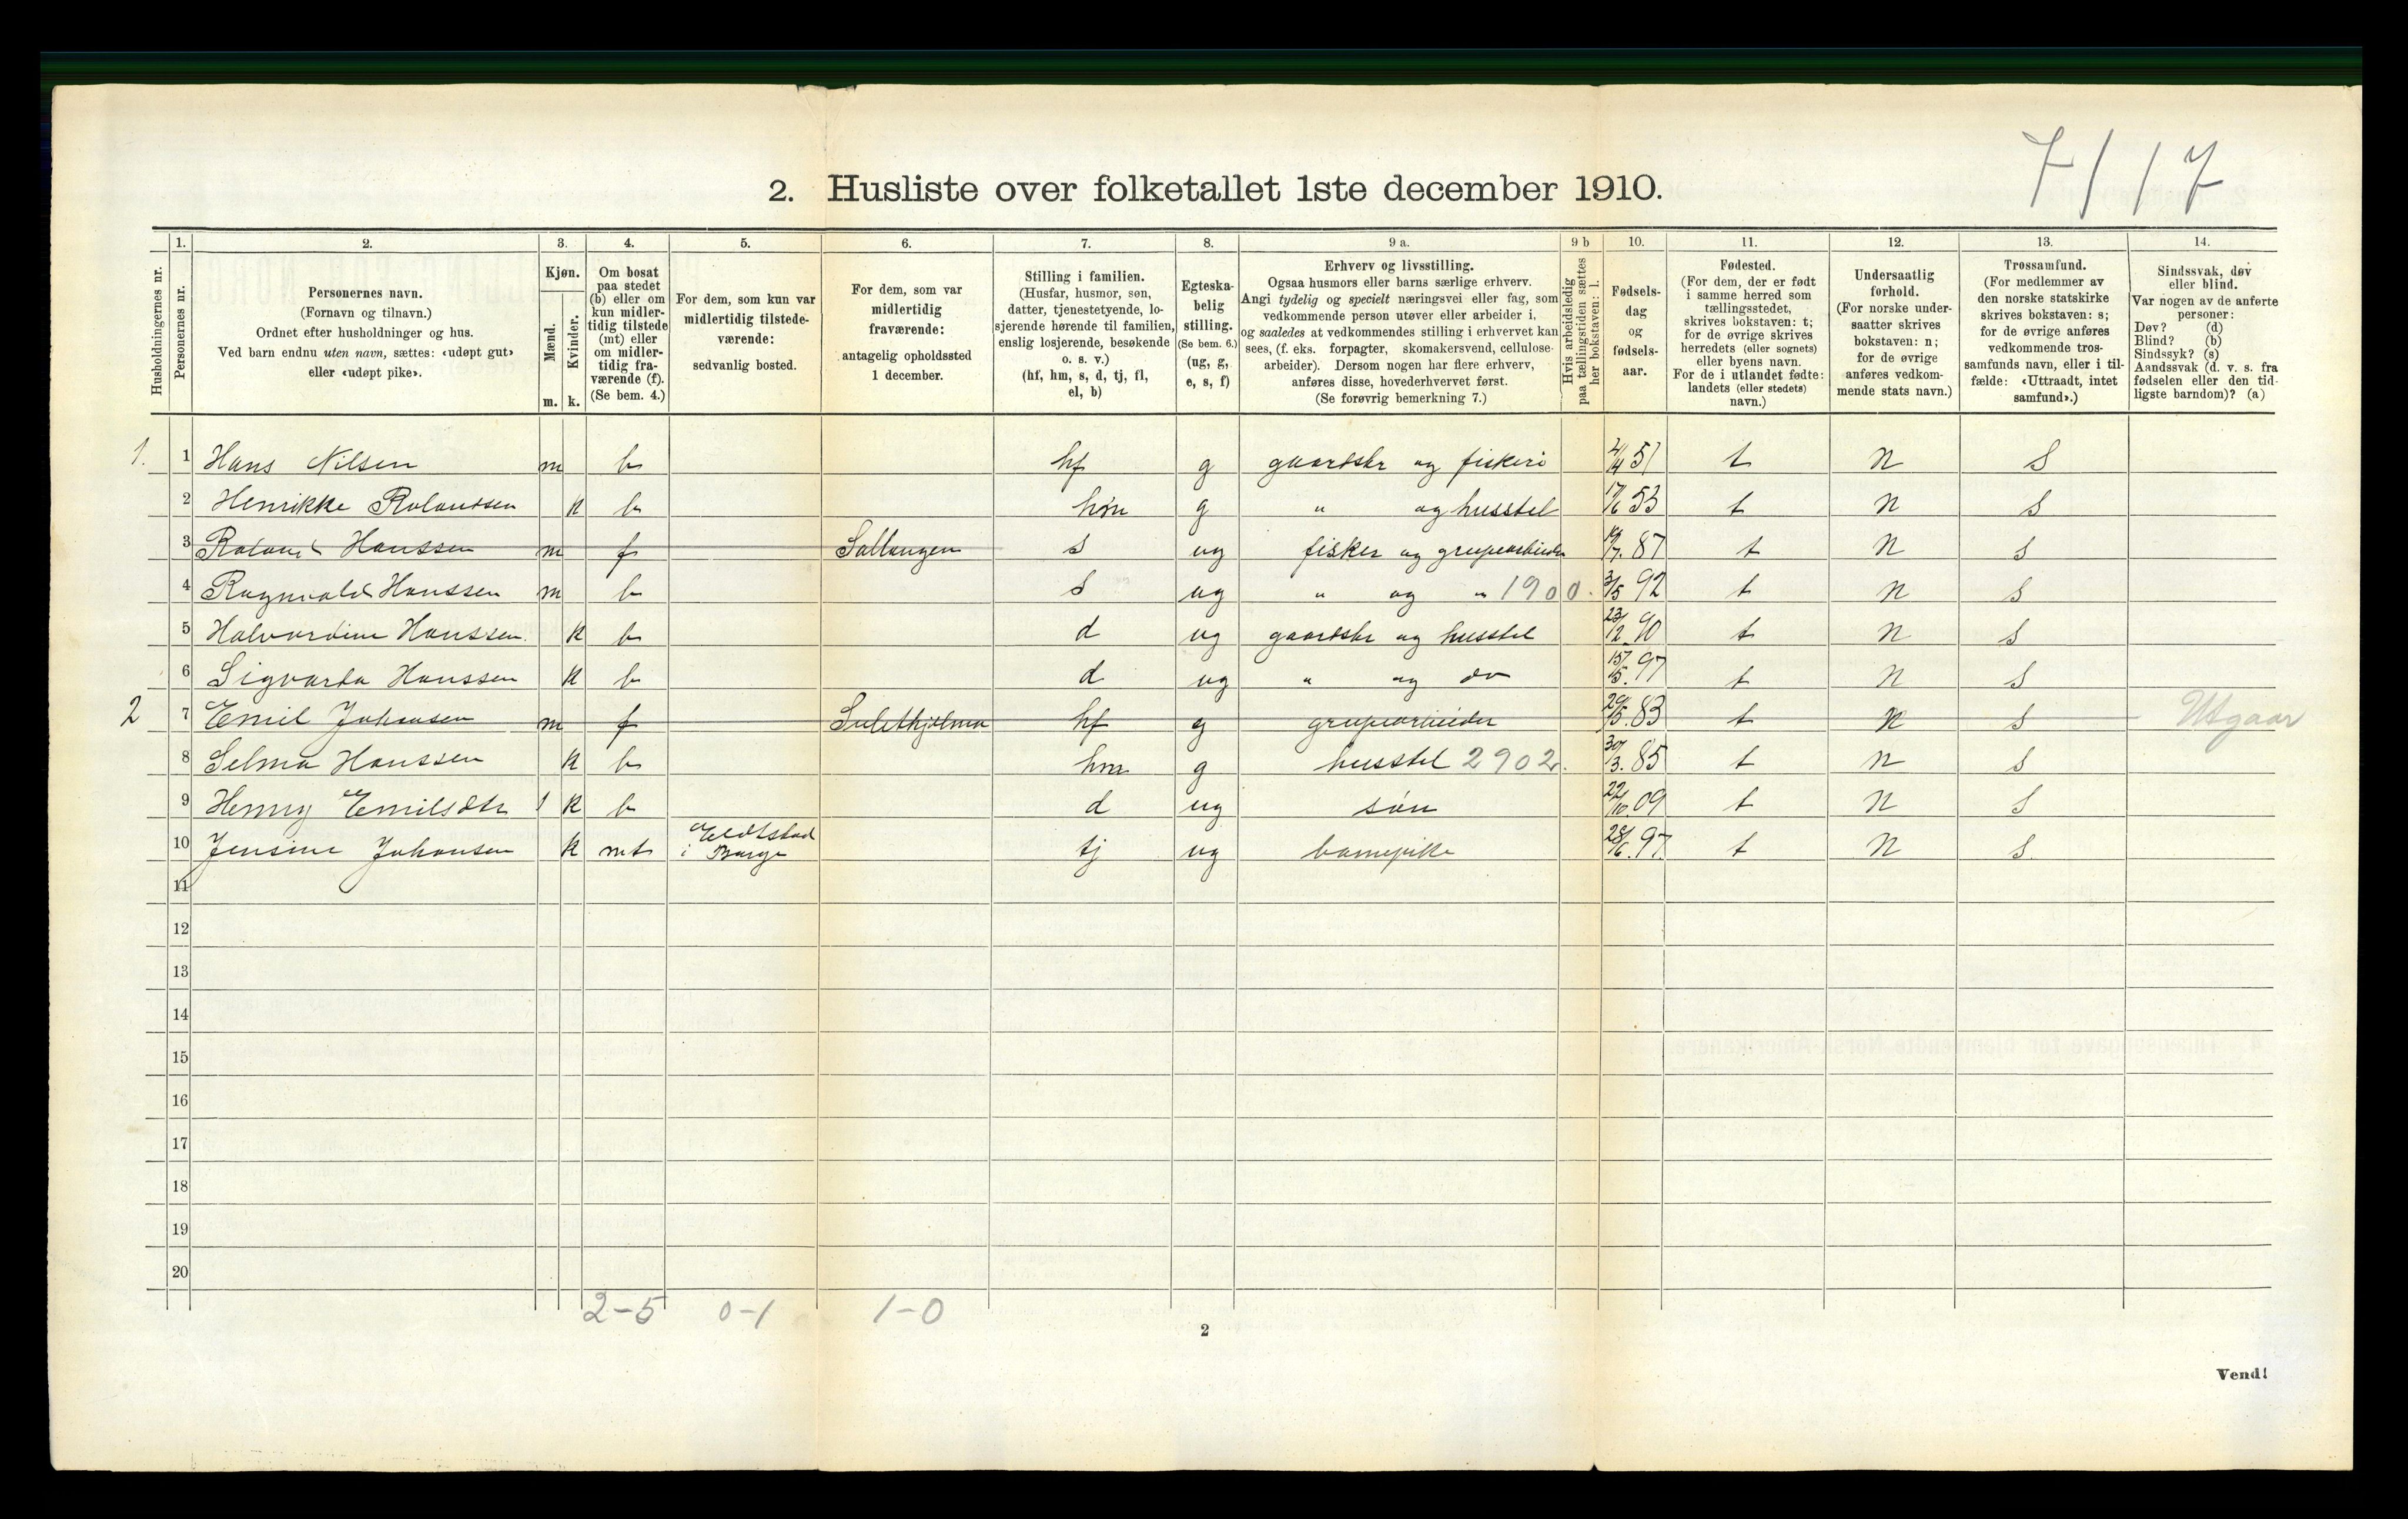 7/17
2. Husliste over folketallet 1ste december 1910.
Husholdningernes nr.
1. Personernes nr.
2. Personernes navn.
(Fornavn og tilnavn.)
Ordnet efter husholdninger og hus.
Ved barn endnu uten navn, sættes: «udøpt gut»
eller «udøpt pike».
3. Kjøn.
Mænd. m.
Kvinder. k.
4. Om bosat
paa stedet
(b) eller om
kun midler-
tidig tilstede
(mt) eller
om midler-
tidig fra-
værende (f).
(Se bem. 4.)
5. For dem, som kun var
midlertidig tilstede-
værende:
sedvanlig bosted.
6. For dem, som var
midlertidig
fraværende:
antagelig opholdssted
1 december.
7. Stilling i familien.
(Husfar, husmor, søn,
datter, tjenestetyende, lo-
sjerende hørende til familien,
enslig losjerende, besøkende
o. s. v.)
(hf, hm, s, d, tj, fl,
el, b)
8. Egteska-
belig
stilling.
(Se bem. 6.)
(ug, g,
e, s, f)
9 a. Erhverv og livsstilling.
Ogsaa husmors eller barns særlige erhverv.
Angi tydelig og specielt næringsvei eller fag, som
vedkommende person utøver eller arbeider i,
og saaledes at vedkommendes stilling i erhvervet kan
sees, (f. eks. forpagter, skomakersvend, cellulose-
arbeider). Dersom nogen har flere erhverv,
anføres disse, hovederhvervet først.
(Se forøvrig bemerkning 7.)
9 b Hvis arbeidsledig
paa tællingstiden sættes
her bokstaven: l.
10. Fødsels-
dag
og
fødsels-
aar.
11. Fødested.
(For dem, der er født
i samme herred som
tællingsstedet,
skrives bokstaven: t;
for de øvrige skrives
herredets (eller sognets)
eller byens navn.
For de i utlandet fødte:
landets (eller stedets)
navn.)
12. Undersaatlig
forhold.
(For norske under-
saatter skrives
bokstaven: n;
for de øvrige
anføres vedkom-
mende stats navn.)
13. Trossamfund.
(For medlemmer av
den norske statskirke
skrives bokstaven: s;
for de øvrige anføres
vedkommende tros-
samfunds navn, eller i til-
fælde: «Uttraadt, intet
samfund».)
14. Sindssvak, døv
eller blind.
Var nogen av de anførte
personer:
Døv? (d)
Blind? (b)
Sindssyk? (s)
Aandssvak (d. v. s. fra
fødselen eller den tid-
ligste barndom)? (a)
1. 1 Hans Nilsen m b hf g gaardsbr og fiskeri 51 t n s
2 Henrikke Rolandsen k b hm g " og husstel 17/6 53 t n s
3 Roland Hanssen m f Sallangen s ug fisker og grupearbeider 87 t n s
4 Ragnvald Hanssen m b s ug " og " 1900. 3/5 92 t n s
5 Halvardine Hanssen k b d ug gaardsbr og husstel 23/12 90 t n s
6 Sigvarda Hanssen k b d ug " og do 15/5. 97 t n s
2 7 Emil Johansen m f Sulithjelma hf g grupearbeider 29/5. 83 t n s Utgaar
8 Selma Hanssen k b hm g husstel 2902. 30/3. 85 t n s
9 Henny Emilsdtr 1 k b d ug søn 22/10. 09 t n s
10 Jensine Johansen k mt i Borge tj ug barnepike 28/6. 97. t n s.
11
12
13
14
15
16
17
18
19
20
2-5 0-1 1-0
2
Vend!